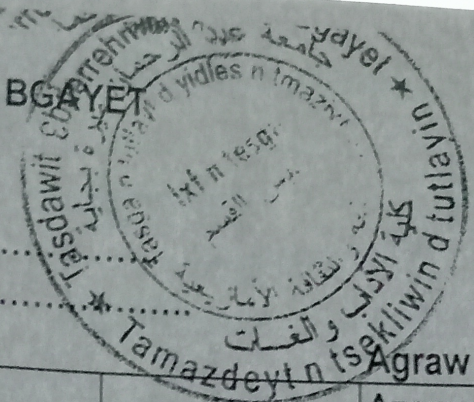 BGAYET
Tasdawit Ɛbderrehman
gayet ★
جامعة عبد الرحمان
بجاية
★ Tamazdeyt n tsekliwin d tutlayin
كلية الآداب و اللغات
Tasga n tutlayt d yidles n tmaziɣt
و الثقافة الأمازيغية
Ixf n tesga
رئيس القسم
Agraw